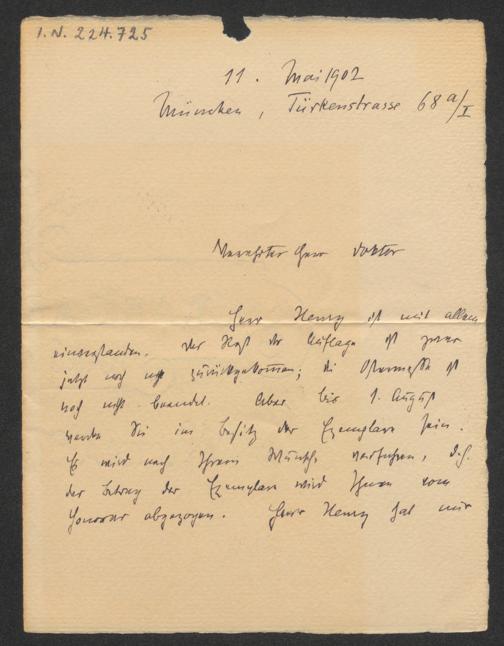 I.N. 224.725
11. Mai 1902
München, Türkenstrasse 68 a/I
Verehrter Herr Doktor
Herr Henry ist mit allem
einverstanden. Der Rest der Auflage ist zwar
jetzt noch nicht zurückgekommen; die Ostermesse ist
noch nicht beendet. Aber bis 1. August
werden Sie im Besitz der Exemplare sein.
Es wird nach Ihrem Wunsche verfahren, d.h.
der Betrag der Exemplare wird Ihnen vom
Honorar abgezogen. Herr Henry hat mir